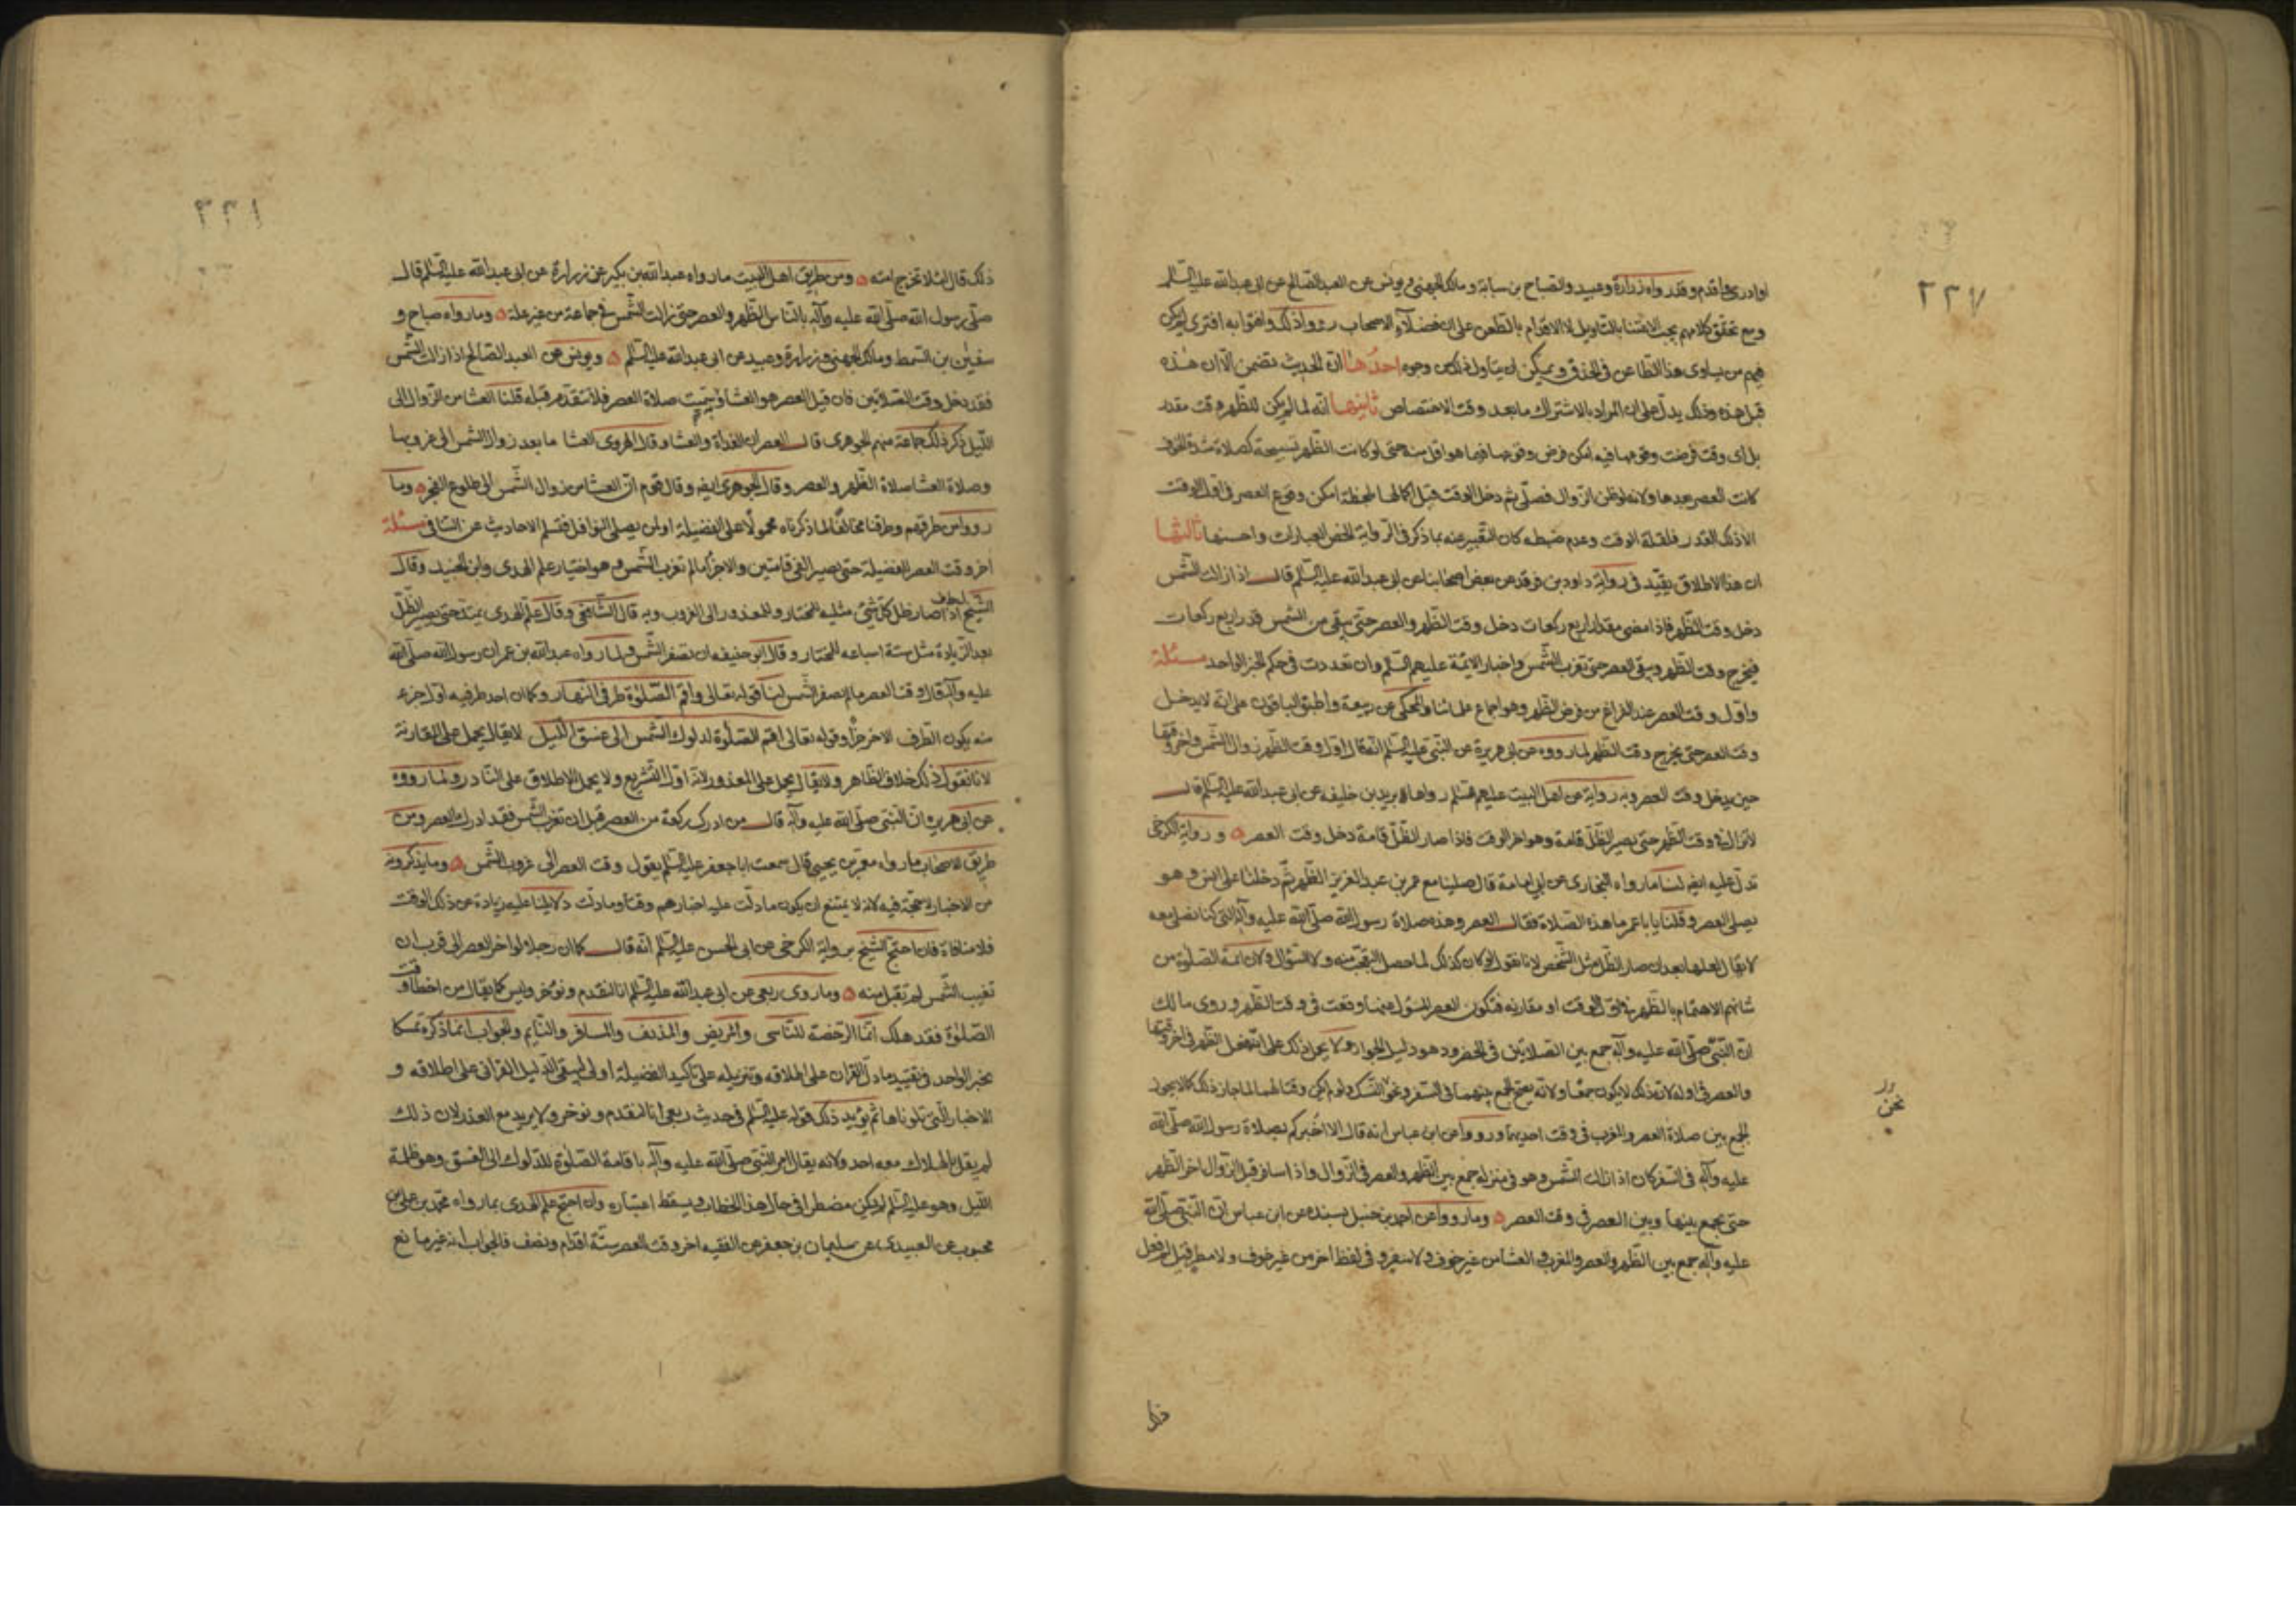 ٢٢٧
او ادرى وا قدم وقد رواه زرارة وعبيد والصباح بن سبابة ومالك الجهنى ويونس عن العبد الصالح عن ابى عبدالله عليه السلم
ومع تحقق كلامهم يجب الاعتنا بالتاويل لا الاقدام بالطعن على ان فضلآء الاصحاب رووا ذلك وافتوا به افترى لم يكن
فيهم من يساوى هذا الطاعن فى الحذق ويمكن ان يتاول ذلك من وجوه احدها ان الحديث تضمن الا ان هذه
قبل هذه وذلك يدل على ان المراد بالاشتراك ما بعد وقت الاختصاص ثانيها انه لما لم يكن للظهر وقت مقدر
بل اى وقت فرضت وقوعها فيه امكن فرض وقوعها فيما هو اقل منه حتى لو كانت الظهر تسبيحة كصلاة شدة الخوف
كانت العصر بعدها ولانه لو ظن الزوال فصلى ثم دخل الوقت قبل اكمالها بلحظة امكن وقوع العصر فى اول الوقت
الا ذلك القدر فلقلة الوقت وعدم ضبطه كان التعبير عنه بما ذكر فى الرواية الخص العبارات واحسنها ثالثها
ان هذا الاطلاق يقيد فى رواية داود بن فرقد عن بعض اصحابنا عن ابى عبدالله عليه السلم قال اذا زالت الشمس
دخل وقت الظهر فاذا مضى مقدار اربع ركعات دخل وقت الظهر والعصر حتى يبقى من الشمس قدر اربع ركعات
فيخرج وقت الظهر ويبقى العصر حتى تغرب الشمس واخبار الائمة عليهم السلم وان تعددت فى حكم الخبر الواحد مسئلة
واول وقت العصر عند الفراغ من فرض الظهر وهو اجماع علمائنا والمحكى عن ربيعة واطبق الباقون على انه لا يدخل
وقت العصر حتى يخرج وقت الظهر لما رووه عن ابى هريرة عن النبى عليه السلم انه قال اول وقت الظهر زوال الشمس واخر وقتها
حين يدخل وقت العصر وبه رواية عن اهل البيت عليهم السلم رواها يزيد بن خليفه عن ابى عبدالله عليه السلم قال
لا تزال فى وقت الظهر حتى يصير الظل قامة وهو اخر الوقت فاذا صار الظل قامة دخل وقت العصر ۞ ورواية الكرخى
تدل عليه ايضا لنا ما رواه البخارى عن ابى امامة قال صلينا مع عمر بن عبد العزيز الظهر ثم دخلنا على انس وهو
يصلى العصر وقلنا يا باعمر ما هذا الصلاة فقال العصر وهذه صلاة رسول الله صلى الله عليه وآله التى كنا نصلى معه
لا يقال لعلها بعد ان صار الظل مثل الشخص لانا نقول لو كان كذلك لما حصل التعجب منه ولا السؤال ولان ائمة الصلوة من
شانهم الاهتمام بالظهر فى اول الوقت او مقاربه فتكون العصر المسؤل عنها وقعت فى وقت الظهر وروى مالك
ان النبى صلى الله عليه وآله جمع بين الصلاتين فى الحضر وهو دليل الجواز ولا يحمل ذلك على انه فعل الظهر فى اخر وقتها
والعصر فى اوله لان ذلك لا يكون جمعا ولانه يصح الجمع بينهما فى السفر وغير النسك ولو لم يكن وقتا لهما لما جاز ذلك كما لا يجوز
نحن
الجمع بين صلاة العصر والمغرب فى وقت احديهما ورووا عن ابن عباس انه قال الا اخبركم بصلاة رسول الله صلى الله
عليه وآله فى السفر كان اذا زالت الشمس وهو فى منزله جمع بين الظهر والعصر فى الزوال واذا سافر قبل الزوال اخر الظهر
حتى يجمع بينها وبين العصر فى وقت العصر ۞ وما رووا عن احمد بن حنبل بسنده عن ابن عباس ان النبى صلى الله
عليه وآله جمع بين الظهر والعصر والمغرب والعشا من غير خوف ولا سفر وفى لفظ اخر من غير خوف ولا مطر قيل لم فعل
ذلك
٢٢٨
ذلك قال لئلا تخرج امته ۞ ومن طريق اهل البيت ما رواه عبدالله بن بكير عن زرارة عن ابى عبدالله عليه السلم قال
صلى رسول الله صلى الله عليه وآله بالناس الظهر والعصر حتى زالت الشمس فى جماعة من غير علة ۞ وما رواه صباح و
سفين بن السمط ومالك الجهنى وزرارة وعبيد عن ابى عبدالله عليه السلم ۞ ويونس عن العبد الصالح اذا زالت الشمس
فقد دخل وقت الصلاتين فان قيل العصر هو العشا وسميت صلاة العصر فلا تتقدم قبله قلنا العشا من الزوال الى
الليل ذكر ذلك جماعة منهم الجوهرى قال العصران الغداة والعشا وقال الهروى العشا ما بعد زوال الشمس الى غروبها
وصلاة العشا صلاة الظهر والعصر وقال الجوهرى ايضا وقال قوم ان العشا من زوال الشمس الى طلوع الفجر ۞ وما
رووا من طرقهم وطرقنا مخالفا لما ذكرناه محمولا على الفضيلة او لمن يصلى النوافل فتسلم الاحاديث عن التنافى مسئلة
اخر وقت العصر للفضيلة حتى يصير الفئ قامتين والاجزآ ما لم تغرب الشمس وهو اختيار علم الهدى وابن الجنيد وقال
الشيخ فى الخلاف اذا صار ظل كل شئ مثليه للمختار وللمعذور الى الغروب وبه قال الشافعى وقال علم الهدى يمتد حتى يصير الظل
بعد الزيادة مثل ستة اسباعه للمختار وقال ابو حنيفه ان تصفر الشمس ولما رواه عبدالله بن عمر ان رسول الله صلى الله
عليه وآله قال وقت العصر ما لم تصفر الشمس لنا قوله تعالى واقم الصلوة طرفى النهار وكما ان احد طرفيه اول جزء
منه يكون الطرف الاخر جزآ وقوله تعالى اقم الصلوة لدلوك الشمس الى غسق الليل لا يقال يحمل على المقاربة
لانا نقول ذلك خلاف الظاهر ولا يقال يحمل على المعذور لانه اول التشريع ولا يحمل الاطلاق على النادر ولما رووه
عن ابى هريرة ان النبى صلى الله عليه وآله قال من ادرك ركعة من العصر قبل ان تغرب الشمس فقد ادرك العصر ومن
طريق الاصحاب ما رواه معمر بن يحيى قال سمعت ابا جعفر عليه السلم يقول وقت العصر الى غروب الشمس ۞ وما يذكرونه
من الاخبار لا حجة فيه لانه لا يمتنع ان يكون ما دلت عليه اخبارهم وقتا وما دلت دلايلنا عليه زيادة عن ذلك الوقت
فلا منافاة فان احتج الشيخ برواية الكرخى عن ابى الحسن عليه السلم انه قال كما ان رجلا لو اخر العصر الى قرب ان
تغيب الشمس لم تقبل منه ۞ وما روى ربعى عن ابى عبدالله عليه السلم انا لنقدم ونؤخر وليس كما يقال من اخطأ وقت
الصلوة فقد هلك انما الرخصة للناسى والمريض والمدنف والمسافر والنايم والجواب انما ذكره تمسكا
بخبر الواحد فى تقييد ما دل القران على اطلاقه وتنزيله على تاكيد الفضيلة اولى ليبقى الدليل القرانى على اطلاقه و
الاخبار التى تلوناها ثم يؤيد ذلك قوله عليه السلم فى حديث ربعى انا لنقدم ونوخر ولا يريد مع العذر لان ذلك
لم يقل بالهلاك معه احد ولانه يقال امر النبى صلى الله عليه وآله باقامة الصلوة للدلوك الى الغسق وهو ظلمة
الليل وهو عليه السلم لم يكن مضطرا فى حال هذا الخطاب ويسقط اعتباره وان احتج علم الهدى بما رواه محمد بن على بن
محبوب عن العبيدى عن سليمان بن جعفر عن الفقيه اخر وقت العصر ستة اقدام ونصف فالجواب انه غير مانع